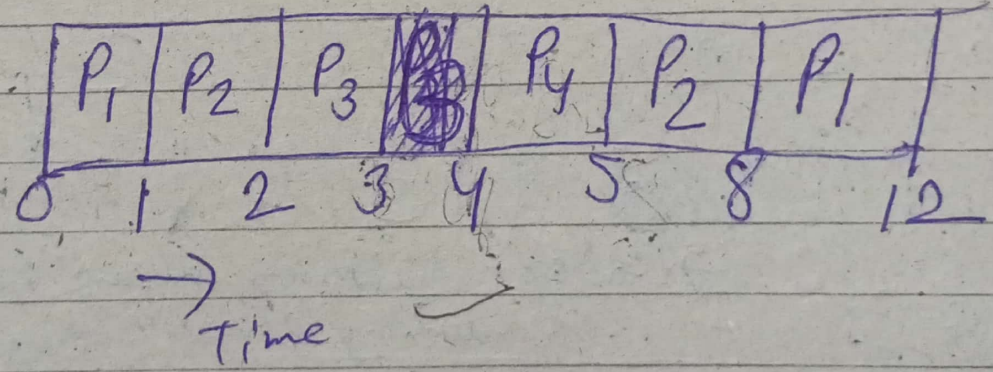 P1 P2 P3 P4 P2 P1
0 1 2 3 4 5 8 12
Time